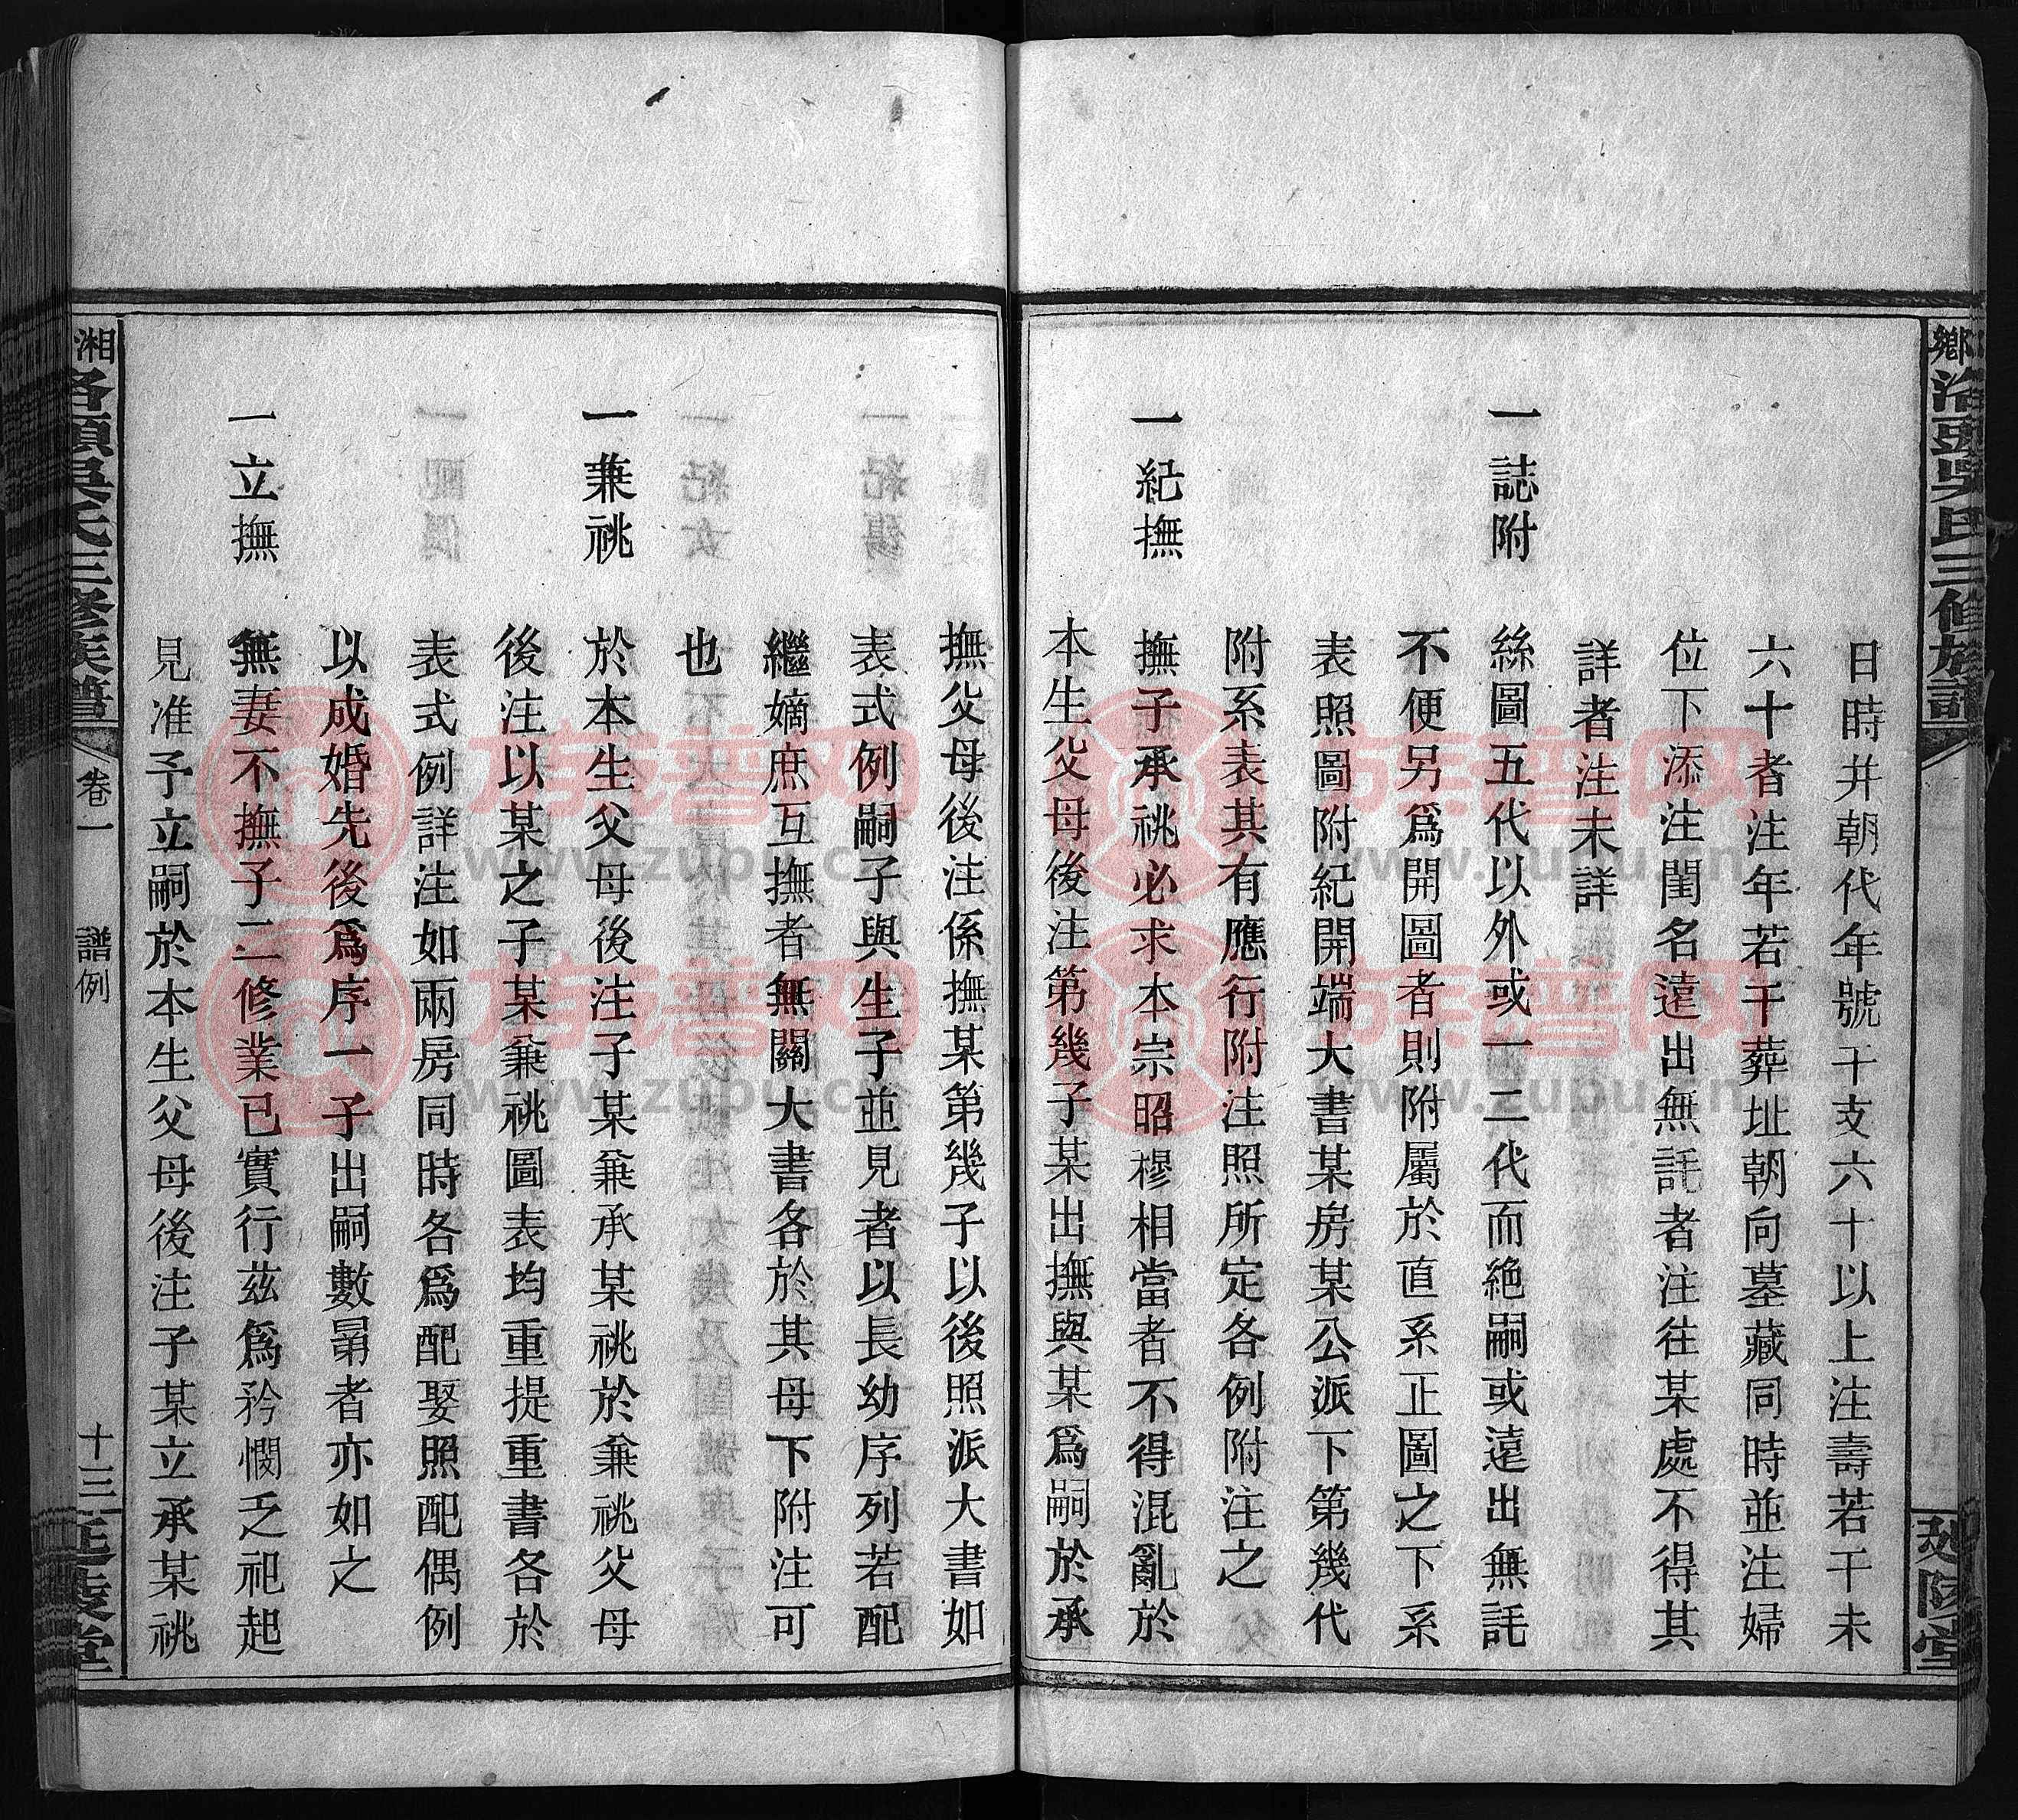 日時并朝代年號干支六十以上注壽若干未
六十者注年若干葬址朝向墓藏同時並注婦
位下添注閨名遠出無託者注往某處不得其
詳者注未詳
一誌附
絲圖五代以外或一二代而絶嗣或遠出無託
不便另爲開圖者則附屬於直系正圖之下系
表照圖附紀開端大書某房某公派下第幾代
附系表其有應行附注照所定各例附注之
一紀撫
撫子承祧必求本宗昭穆相當者不得混亂於
本生父母後注第幾子某出撫與某爲嗣於承
撫父母後注係撫某第幾子以後照派大書如
表式例嗣子與生子並見者以長幼序列若配
繼嫡庶互撫者無關大書各於其母下附注可
也
一兼祧
於本生父母後注子某兼承某祧於兼祧父母
後注以某之子某兼祧圖表均重提重書各於
表式例詳注如兩房同時各爲配娶照配偶例
以成婚先後爲序一子出嗣數房者亦如之
一立撫
無妻不撫子二修業已實行茲爲矜憫乏祀起
見准予立嗣於本生父母後注子某立承某祧
鄉 洛頭吳氏三修族譜
延陵堂
湘 洛頭吳氏三修族譜 卷一 譜例 十三 延陵堂
族譜网
www.zupu.cn
族譜网
www.zupu.cn
族譜网
www.zupu.cn
族譜网
www.zupu.cn